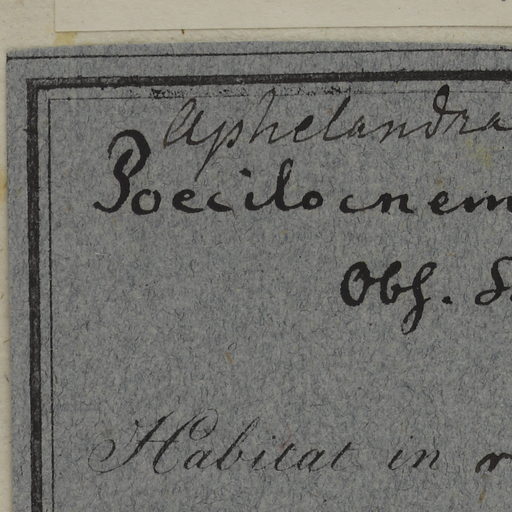 Aphelandra
Poecilocnem
Obs. S.
Habitat in